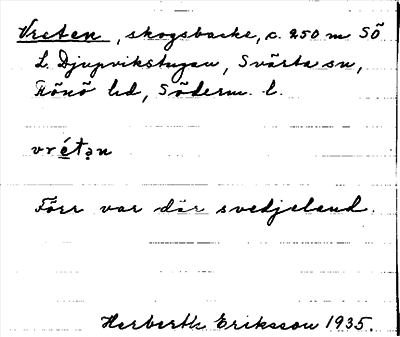 Vreten, skogsbacke, c. 250 m SÖ
L. Djupvikstugan, Svärta sn,
Rönö hd, Söderm. l.
vrétən
Förr var där svedjeland.
Herberth Eriksson 1935.